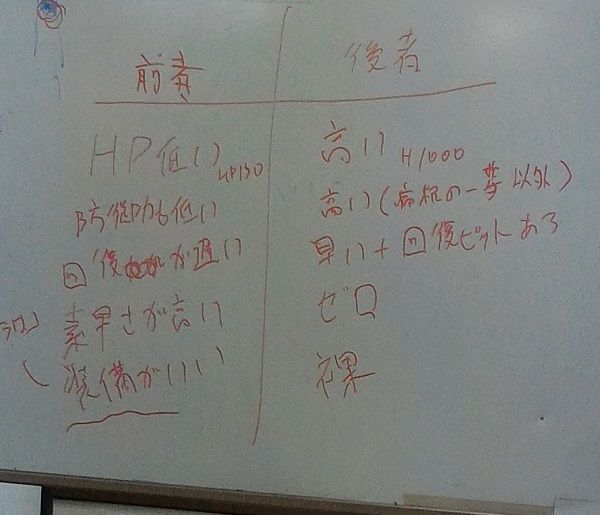 前者 後者
HP低い HP130 高い H1000
防御力も低い 高い(病相の一等以外)
回復が遅い 早い+回復ピットある
素早さが高い ゼロ
装備がいい 裸